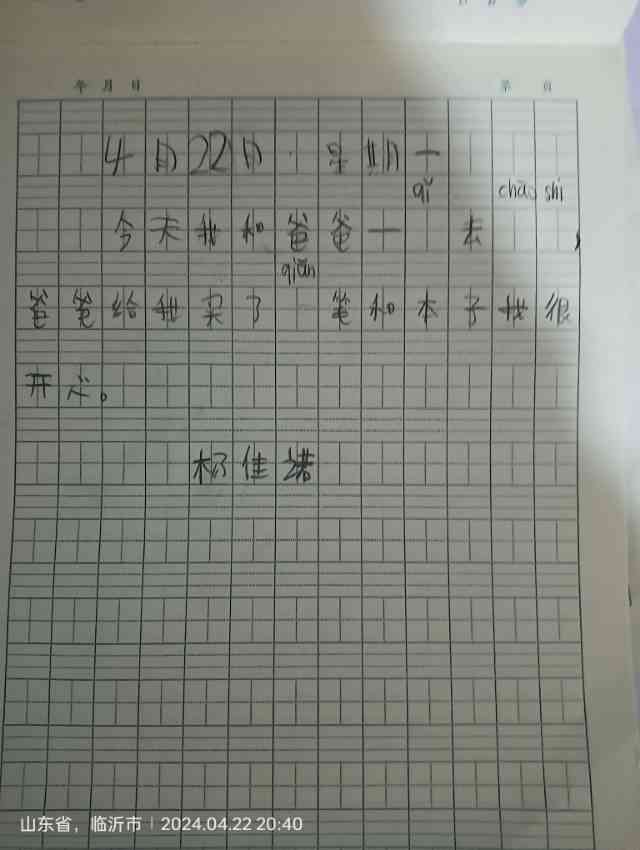 年 月 日 第 页
4月22日 · 星期一
今天我和爸爸一qǐ去chāo shì,
爸爸给我买了qiān笔和本子我很
开心。
杨佳诺
山东省,临沂市 | 2024.04.22 20:40